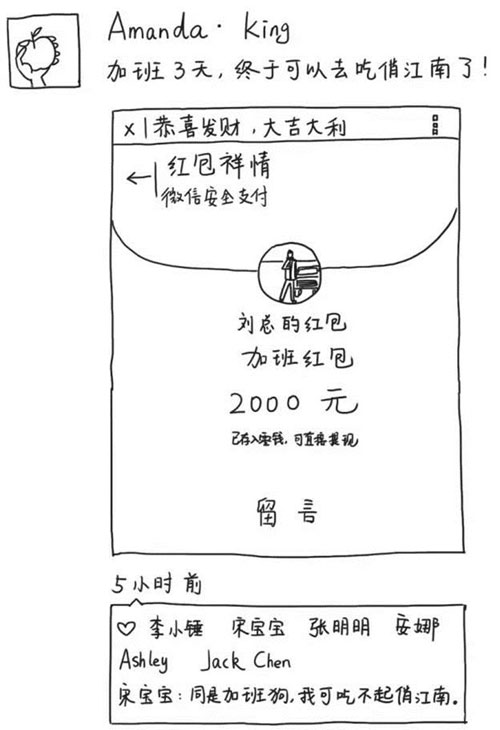 Amanda · King
加班3天，终于可以去吃俏江南了！
X | 恭喜发财，大吉大利
红包祥情
微信安全支付
刘总的红包
加班红包
2000 元
已存入零钱，可直接提现
留言
5小时前
♡ 李小锤 宋宝宝 张明明 安娜
Ashley Jack Chen
宋宝宝：同是加班狗，我可吃不起俏江南。